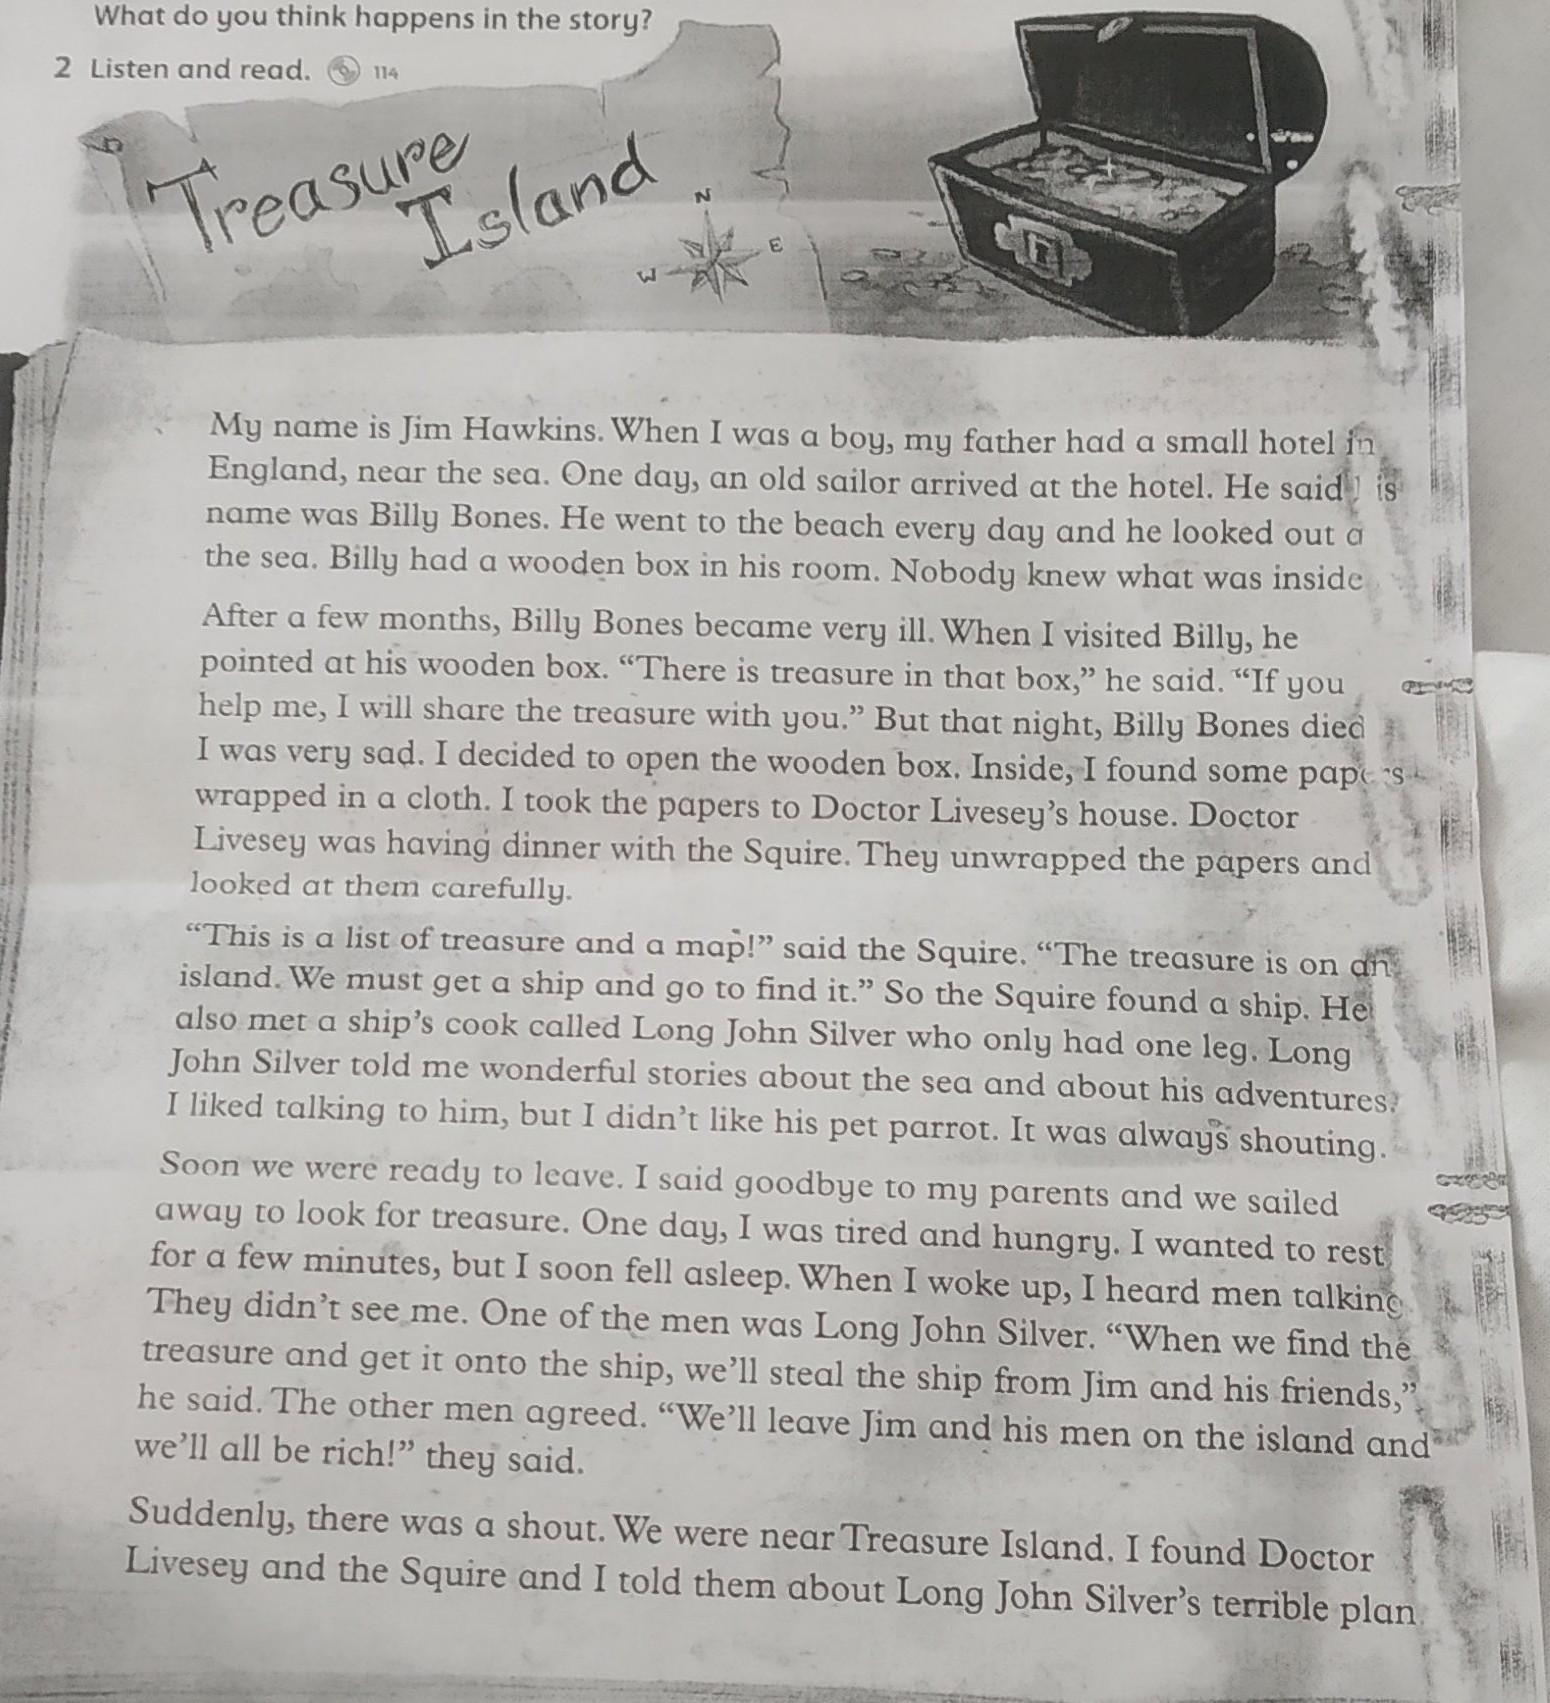 What do you think happens in the story?
2 Listen and read. 114
Treasure
Island
N
W E
My name is Jim Hawkins. When I was a boy, my father had a small hotel in
England, near the sea. One day, an old sailor arrived at the hotel. He said is
name was Billy Bones. He went to the beach every day and he looked out a
the sea. Billy had a wooden box in his room. Nobody knew what was inside
After a few months, Billy Bones became very ill. When I visited Billy, he
pointed at his wooden box. “There is treasure in that box,” he said. “If you
help me, I will share the treasure with you.” But that night, Billy Bones died
I was very sad. I decided to open the wooden box. Inside, I found some papers
wrapped in a cloth. I took the papers to Doctor Livesey’s house. Doctor
Livesey was having dinner with the Squire. They unwrapped the papers and
looked at them carefully.
“This is a list of treasure and a map!” said the Squire. “The treasure is on an
island. We must get a ship and go to find it.” So the Squire found a ship. He
also met a ship’s cook called Long John Silver who only had one leg. Long
John Silver told me wonderful stories about the sea and about his adventures.
I liked talking to him, but I didn’t like his pet parrot. It was always shouting.
Soon we were ready to leave. I said goodbye to my parents and we sailed
away to look for treasure. One day, I was tired and hungry. I wanted to rest
for a few minutes, but I soon fell asleep. When I woke up, I heard men talking
They didn’t see me. One of the men was Long John Silver. “When we find the
treasure and get it onto the ship, we’ll steal the ship from Jim and his friends,”
he said. The other men agreed. “We’ll leave Jim and his men on the island and
we’ll all be rich!” they said.
Suddenly, there was a shout. We were near Treasure Island. I found Doctor
Livesey and the Squire and I told them about Long John Silver’s terrible plan